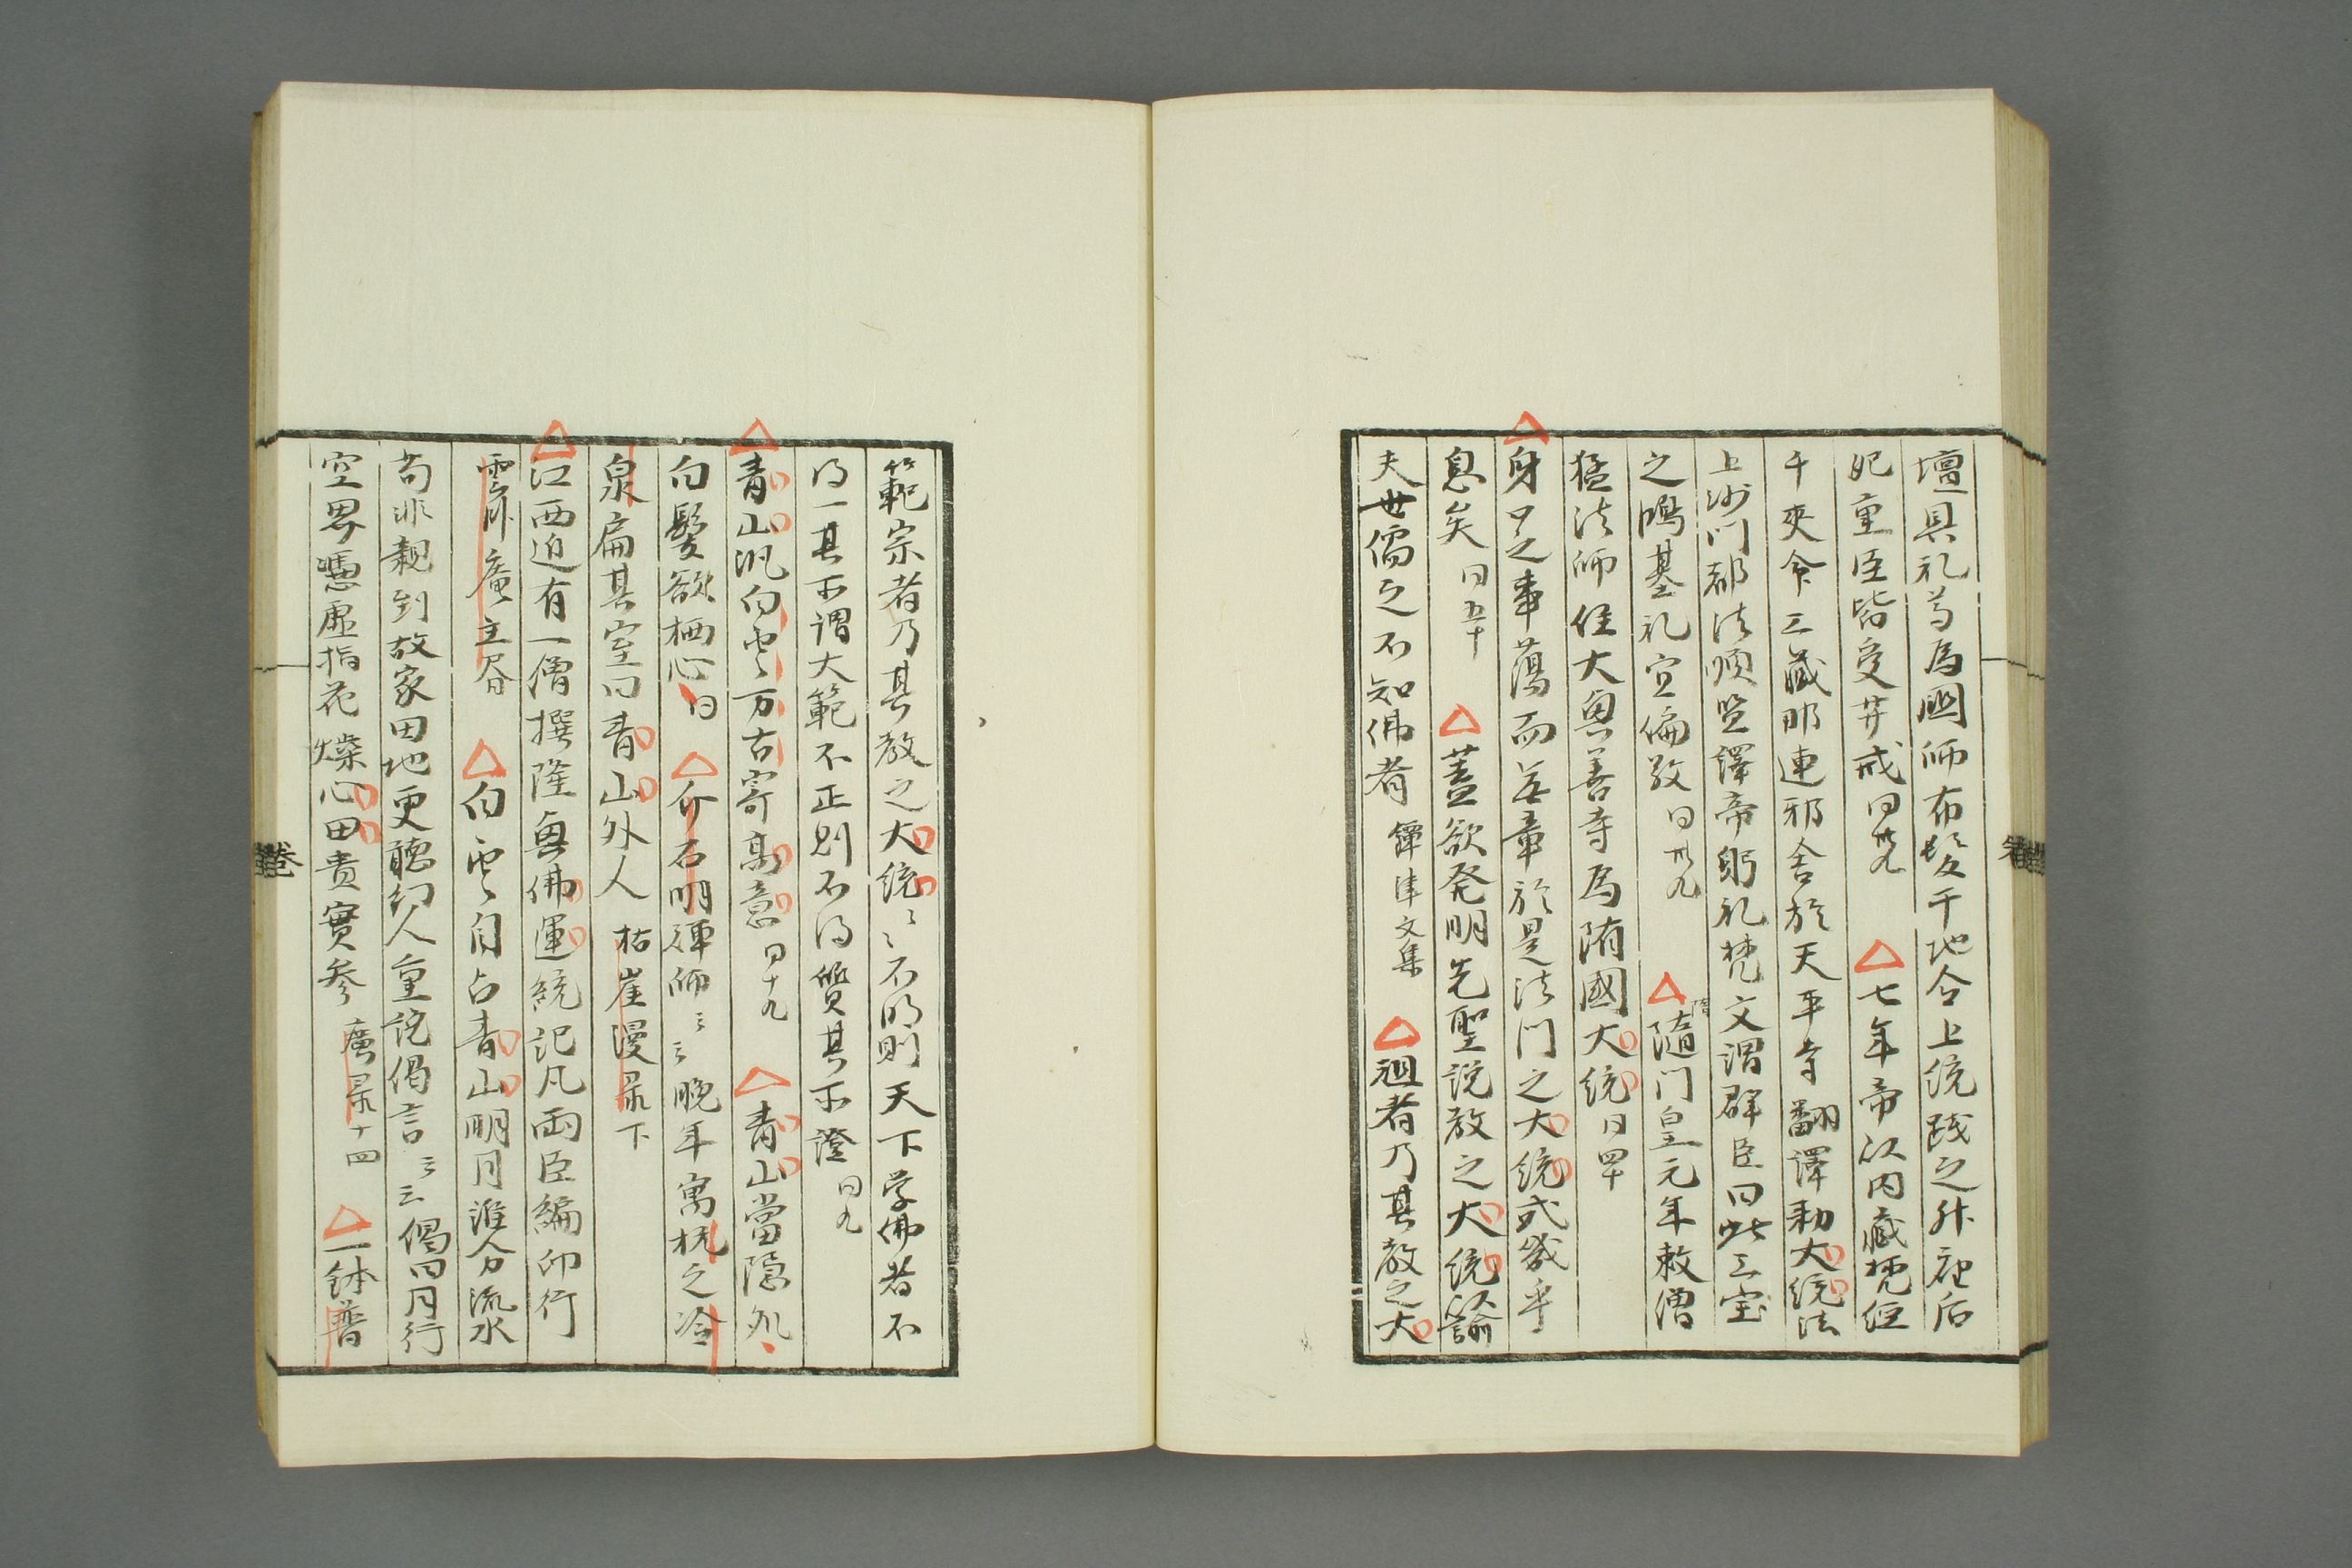 壇具礼為國師布髮于地令上統踐之升座后
妃重臣皆受菩戒 同卅九 △七年帝以内藏梵経
千夾令三藏那連邪舍於天平寺翻譯勅大統法
上沙門都法順監譯帝躬礼梵文謂群臣曰此三宝
之鴻基礼宜偏敬 同卅九 △隨門皇元年敕僧
隋
猛法師住大興善寺為隋國大統 同四十
△身口之事蕩而無章於是法門之大統或幾乎
息矣 同五十 △蓋欲発明先聖説教之大統以諭
夫世儒之不知佛者 鐔津文集 △祖者乃其教之大
範宗者乃其教之大統ミミ不明則天下学佛者不
得一其所謂大範不正則不得質其所證 同九
△青山汎白雲万古寄高意 同十九 △青山當隠処
白髪欲栖心 同 △介石明禅師ミミ晩年寓杭之冷
泉扁其室曰青山外人 枯崖漫录下
△江西迫有一僧撰隆興佛運統記凡両臣編印行
雲臥庵主 △白雲自占青山明月誰分流水
苟非親到故家田地更聴幻人重説偈言ミ三偈曰月行
空界憑虚指花燦心田貴實参 廣录十四 △一鉢普
巻